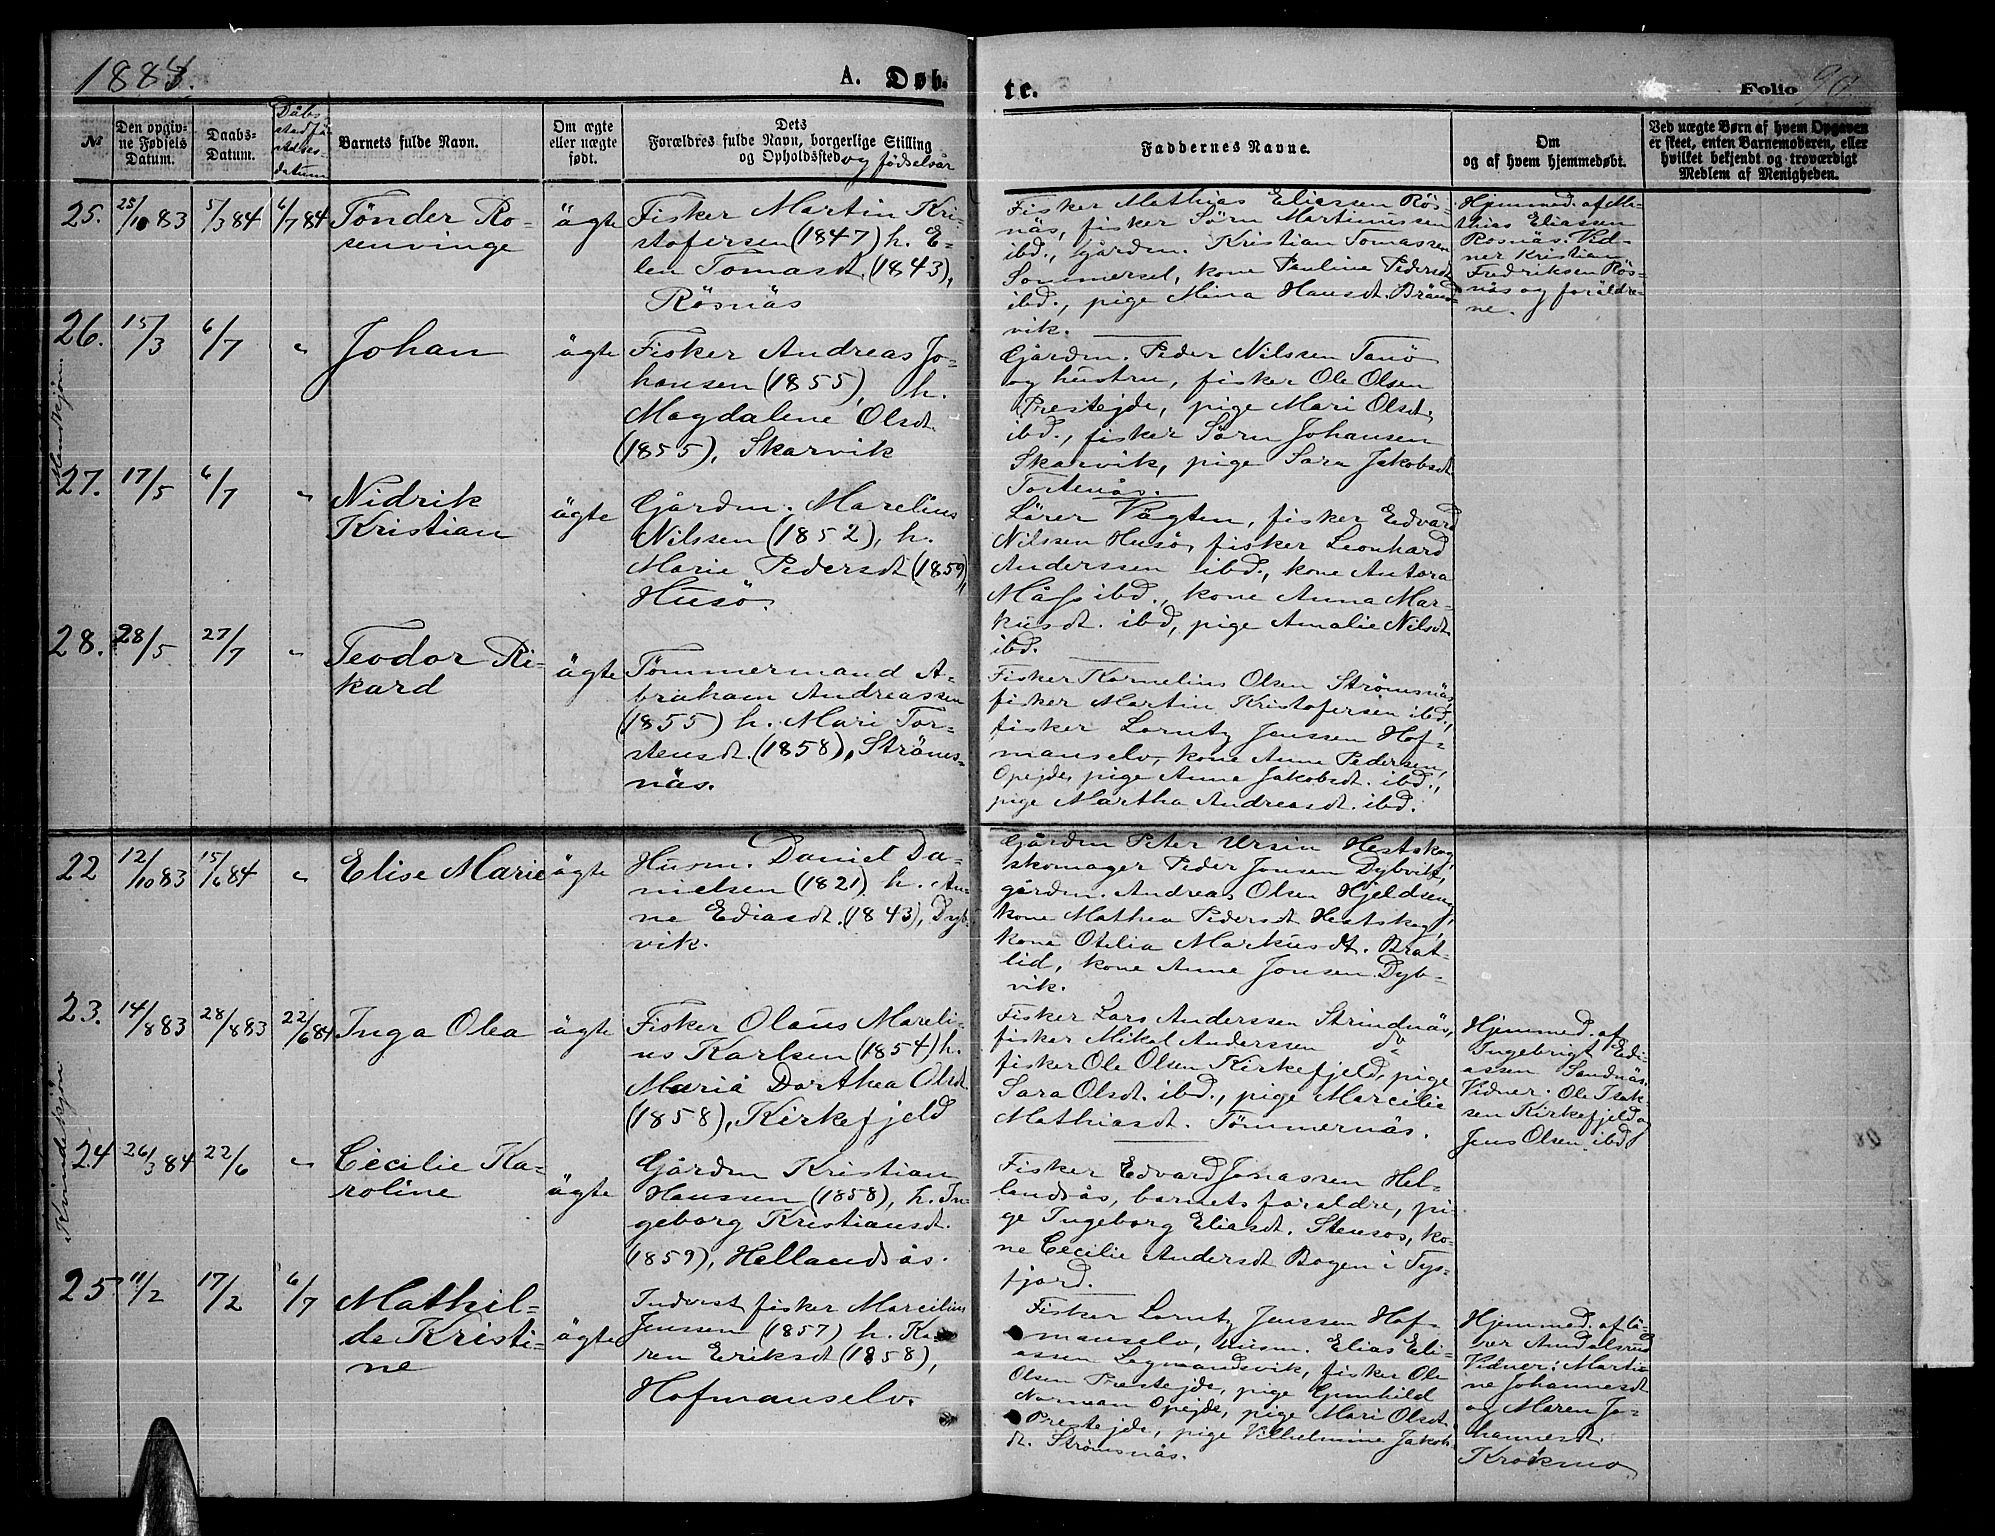 1884.
A. Døb-
te.
Folio 90
№
Den opgiv-
ne Fødsels
Datum.
Daabs-
Datum.
Dåbs-
stadfæ
stelses-
datum
Barnets fulde Navn.
Om ægte
eller uægte
født.
Dets
Forældres fulde Navn, borgerlige Stilling
og Opholdssted og fødselsår
Faddernes Navne.
Om
og af hvem hjemmedøbt.
Ved uægte Børn af hvem Opgaven
er skeet, enten Barnemoderen, eller
hvilket bekjendt og troværdigt
Medlem af Menigheden.
Mandkjøn.
25. 25/10 83 5/3 84 6/7 84
Tönder Ro-
senvinge
ägte
Fisker Martin Kri-
stofersen (1847) h. E-
len Tomasdt. (1843),
Rösnäs
Fisker Mathias Eliassen Rös-
näs, fisker Sørn Martinussen
ibd., Gårdm. Kristian Tomassen
Sommersel, kone Pauline Pedersdt
ibd., pige Mina Hansdt. Bräns-
vik.
Hjemmed. af Ma-
thias Eliassen
Rosnäs. Vid-
ner Kristian
Fredriksen Rös-
näs og foräldre-
ne.
26. 15/3 6/7 "
Johan
ägte
Fisker Andreas Jo-
hansen (1855), h.
Magdalene Olsdt.
(1855), Skarvik
Gårdm. Peder Nilssen Tanö
og hustru, fisker Ole Olsen
Prestejde, pige Mari Olsdt,
ibd., fisker Sørn Johansen
Skarvik, pige Sara Jakobsdt
Tortenås.
27. 17/5 6/7 "
Nidrik
Kristian
ägte
Gårdm. Marelius
Nilssen (1852), h.
Marie Pedersdt (1859),
Husö.
Lärer Vågten, fisker Edvard
Nilssen Husö, fisker Leonhard
Anderssen ibd., kone Antora
Måss ibd., kone Anna Mar-
kusdt. ibd, pige Amalie Nilsdt
ibd.
28. 28/5 27/7 "
Teodor Ri-
kard
ägte
Tömmermand A-
braham Andreassen
(1855) h. Mari Tor-
stensdt. (1858), Ströms-
näs.
Fisker Kornelius Olsen Strömsnäs,
fisker Martin Kristofersen ibd.,
fisker Lorntz Jenssen Hof-
manselv, kone Anne Pedersen,
Opejde, pige Anne Jakobsdt. ibd.,
pige Martha Andreasdt. ibd.
Kvindekjøn
22 12/10 83 15/6 84 "
Elise Marie
ägte
Husm. Daniel Da-
nielsen (1821) h. An-
ne Ediasdt. (1843), Dyb-
vik.
Gårdm Peter Ursin Hestskog,
skomager Peder Jonsen Dybvik,
gårdm. Andreas Olsen Hjeldseng,
kone Mathea Pedersdt Hestskog,
kone Otelia Markusdt. Brat-
lid, kone Anne Jonsen Dyb-
vik.
23. 14/8 83 28/8 83 22/6 84
Inga Olea
ägte
Fisker Olaus Mareli-
us Karlsen (1854) h.
Maria Dorthea Olsdt
(1858), Kirkefjeld
Fisker Lars Anderssen Strindnäs,
fisker Mikal Anderssen do
fisker Ole Olsen Kirkefjeld, pige
Sara Olsdt. ibd., pige Marcilie
Mathiasdt. Tömmernäs.
Hjemmed. af
Ingebrigt Edi-
assen Sandnäs.
Vidner: Ole Isak-
sen Kirkefjeld og
Jens Olsen ibd
24 26/3 84 22/6 "
Cecilie Ka-
roline
ägte
Gårdm Kristian
Hanssen (1858), h. In-
geborg Kristiansdt.
(1859), Hellandsås.
Fisker Edvard Jonassen Hel-
landsås, barnets foraldre, pi-
ge Ingeborg Eliasdt. Stensos, ko-
ne Cecilie Andersdt Bogen i Tys-
fjord.
25 11/2 17/2 6/7
Mathil-
de Kristi-
ne
ägte
Indvist fisker Marcilius
Jenssen (1857) h. Ka-
ren Eriksdt (1858),
Hofmanselv.
Fisker Lorntz Jenssen Hof-
manselv, husm. Elias Eli-
assen Lagmandsvik, fisker Ole
Olsen Prestejde, pige Gunhild
Norman Opejde, pige Mari Olsdt.
Prestejde, pige Vilhelmine Jakobs-
dt. Strömsnäs.
Hjemmed. af lä-
rer Amdalsrud
Vidner: Marti-
ne Johannesdt
og Maren Jo-
hannesdt.
Krokmo